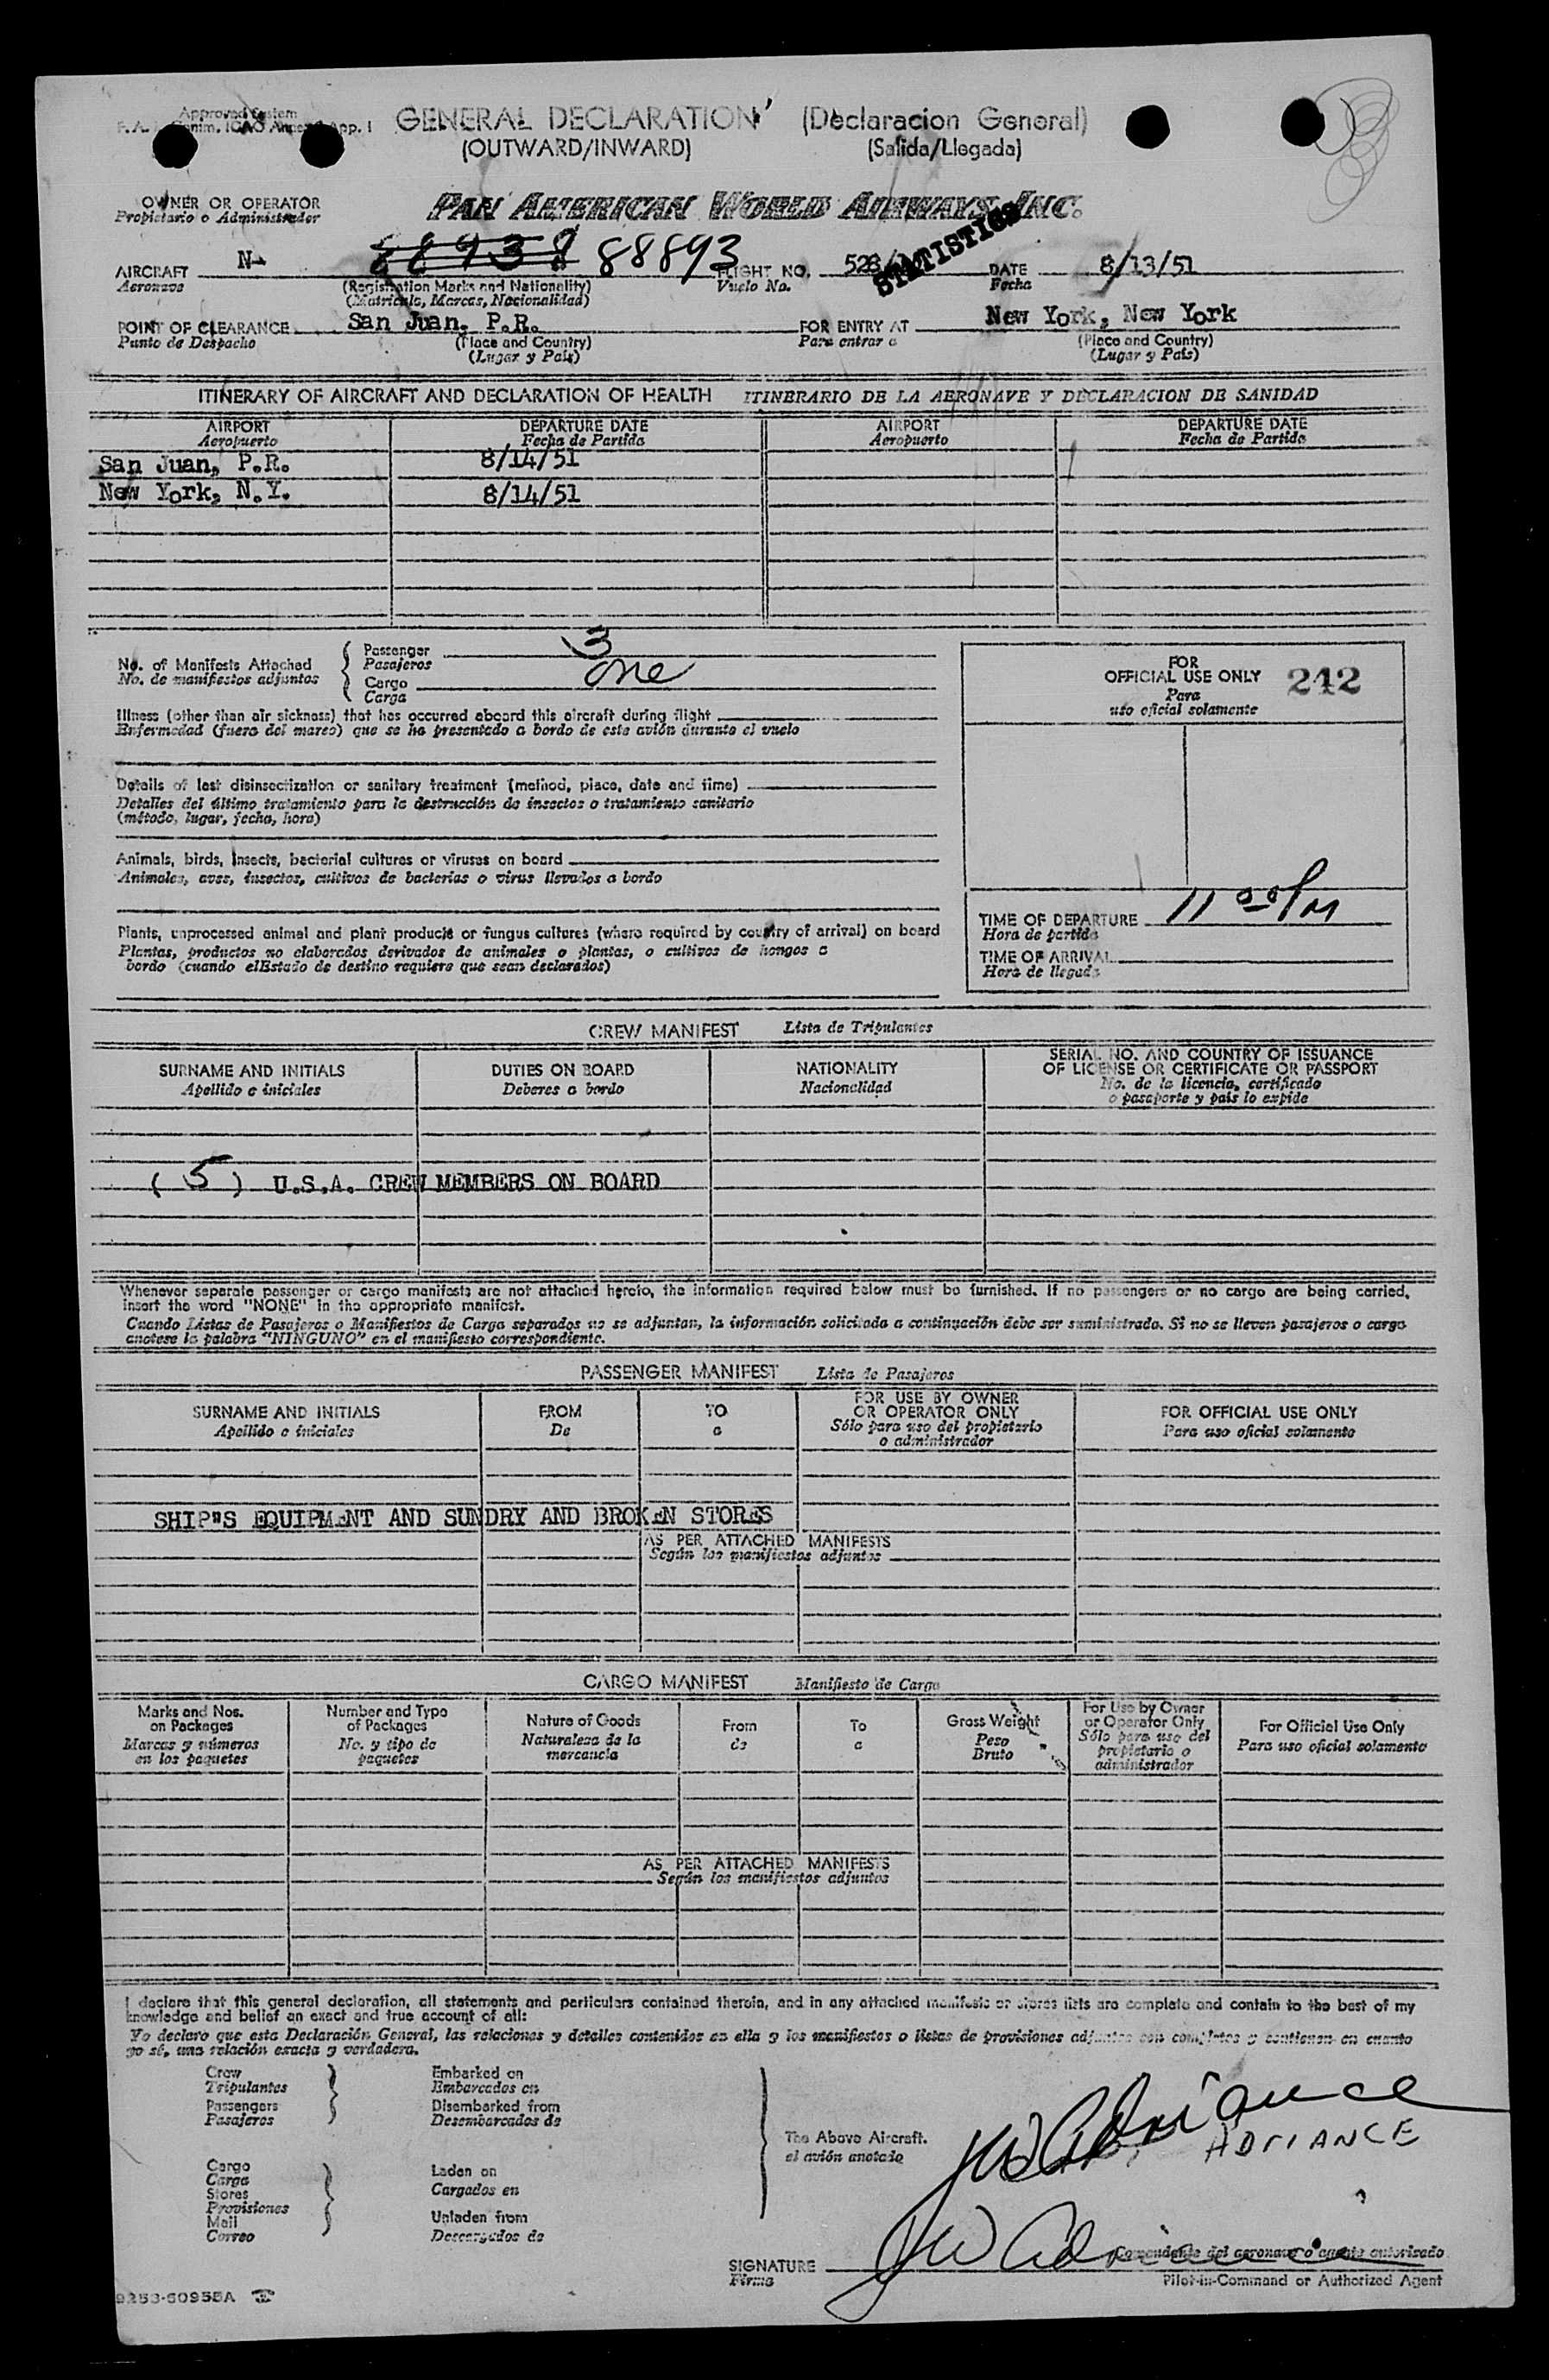 Approved System
App. I
GENERAL DECLARATION (Declaracion General)
(OUTWARD/INWARD) (Salida/Llegada)
OWNER OR OPERATOR
Propietario o Administrador
PAN AMERICAN WORLD AIRWAYS, INC.
STATISTICS
AIRCRAFT N- 88893 FLIGHT NO. DATE 8/13/51
Aeronave (Registration Marks and Nationality) Vuelo No. Fecha
(Matricula, Marcas, Nacionalidad)
POINT OF CLEARANCE San Juan, P.R. FOR ENTRY AT New York, New York
Punto de Despacho (Place and Country) Para entrar a (Place and Country)
(Lugar y País) (Lugar y País)
ITINERARY OF AIRCRAFT AND DECLARATION OF HEALTH ITINERARIO DE LA AERONAVE Y DECLARACION DE SANIDAD
AIRPORT DEPARTURE DATE AIRPORT DEPARTURE DATE
Aeropuerto Fecha de Partida Aeropuerto Fecha de Partida
San Juan, P.R. 8/14/51
New York, N.Y. 8/14/51
No. of Manifests Attached
No. de manifiestos adjuntos
Passenger 3
Pasajeros
Cargo one
Carga
FOR
OFFICIAL USE ONLY 242
Para
uso oficial solamente
Illness (other than air sickness) that has occurred aboard this aircraft during flight
Enfermedad (fuera del mareo) que se ha presentado a bordo de este avión durante el vuelo
Details of last disinsectization or sanitary treatment (method, place, date and time)
Detalles del último tratamiento para la destrucción de insectos o tratamiento sanitario
(método, lugar, fecha, hora)
Animals, birds, insects, bacterial cultures or viruses on board
Animales, aves, insectos, cultivos de bacterias o virus llevados a bordo
Plants, unprocessed animal and plant products or fungus cultures (where required by country of arrival) on board
Plantas, productos no elaborados derivados de animales o plantas, o cultivos de hongos a
bordo (cuando elEstado de destino requiera que sean declarados)
TIME OF DEPARTURE 11 00 PM
Hora de partida
TIME OF ARRIVAL
Hora de llegada
CREW MANIFEST Lista de Tripulantes
SURNAME AND INITIALS DUTIES ON BOARD NATIONALITY SERIAL NO. AND COUNTRY OF ISSUANCE
OF LICENSE OR CERTIFICATE OR PASSPORT
Apellido e iniciales Deberes a bordo Nacionalidad No. de la licencia, certificado
o pasaporte y país lo expide
( 5 ) U.S.A. CREW MEMBERS ON BOARD
Whenever separate passenger or cargo manifests are not attached hereto, the information required below must be furnished. If no passengers or no cargo are being carried,
insert the word "NONE" in the appropriate manifest.
Cuando Listas de Pasajeros o Manifiestos de Carga separados no se adjuntan, la información solicitada a continuación debe ser suministrada. Si no se lleven pasajeros o carga
anotese la palabra "NINGUNO" en el manifiesto correspondiente.
PASSENGER MANIFEST Lista de Pasajeros
SURNAME AND INITIALS FROM TO FOR USE BY OWNER
OR OPERATOR ONLY FOR OFFICIAL USE ONLY
Apellido e iniciales De a Sólo para uso del propietario
o administrador Para uso oficial solamente
SHIP"S EQUIPMENT AND SUNDRY AND BROKEN STORES
AS PER ATTACHED MANIFESTS
Según los manifiestos adjuntos
CARGO MANIFEST Manifiesto de Carga
Marks and Nos.
on Packages
Marcas y números
en los paquetes
Number and Type
of Packages
No. y tipo de
paquetes
Nature of Goods
Naturaleza de la
mercancia
From
de
To
a
Gross Weight
Peso
Bruto
For Use by Owner
or Operator Only
Sólo para uso del
propietario o
administrador
For Official Use Only
Para uso oficial solamente
AS PER ATTACHED MANIFESTS
Según los manifiestos adjuntos
I declare that this general declaration, all statements and particulars contained therein, and in any attached manifests or stores lists are complete and contain to the best of my
knowledge and belief an exact and true account of all:
Yo declaro que esta Declaración General, las relaciones y detalles contenidos en ella y los manifiestos o listas de provisiones adjuntas son completos y contienen en cuanto
yo sé, una relación exacta y verdadera.
Crew
Tripulantes
Passengers
Pasajeros
Embarked on
Embarcados en
Disembarked from
Desembarcados de
Cargo
Carga
Stores
Provisiones
Mail
Correo
Laden on
Cargados en
Unladen from
Descargados de
The Above Aircraft.
el avión anotado
JW Adriance
ADRIANCE
JW Adriance
Comandante del aeronave o agente autorizado
SIGNATURE
Firma
Pilot-in-Command or Authorized Agent
9253-60955A